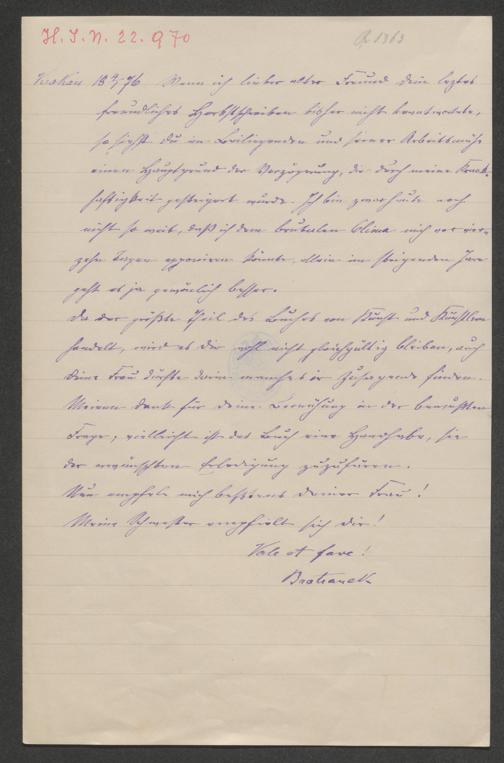 H. I. N. 22.970
Krakau 18 2/1 76 Wenn ich lieber alter Freund dein leztes
freundliches Herbstschreiben bisher nicht beantwortete,
so siehst du im Beiliegenden und seiner Arbeitsmühe
einen Hauptgrund der Verzögerung, die durch meine Krank-
haftigkeit gesteigert wurde. Ich bin zwar heute noch
nicht so weit, daß ich dem brutalen Clima mich vor vier-
zehn Tagen exponieren könnte, allein im steigenden Jare
geht es ja gewönlich besser.
Da der größte Theil des Buches von Kunst und Künstlern
handelt, wird es dir wohl nicht gleichgültig bleiben, auch
deine Frau dürfte darin manches ir Zusagende finden.
Meinen Dank für deine Bemühung in der bewußten
Frage, vielleicht ist das Buch eine Handhabe, sie
der erwünschten Erledigung zuzufüren.
Nun empfele mich bestens deiner Frau!
Meine Schwester empfielt sich dir!
Vale et fave!
Bratranek